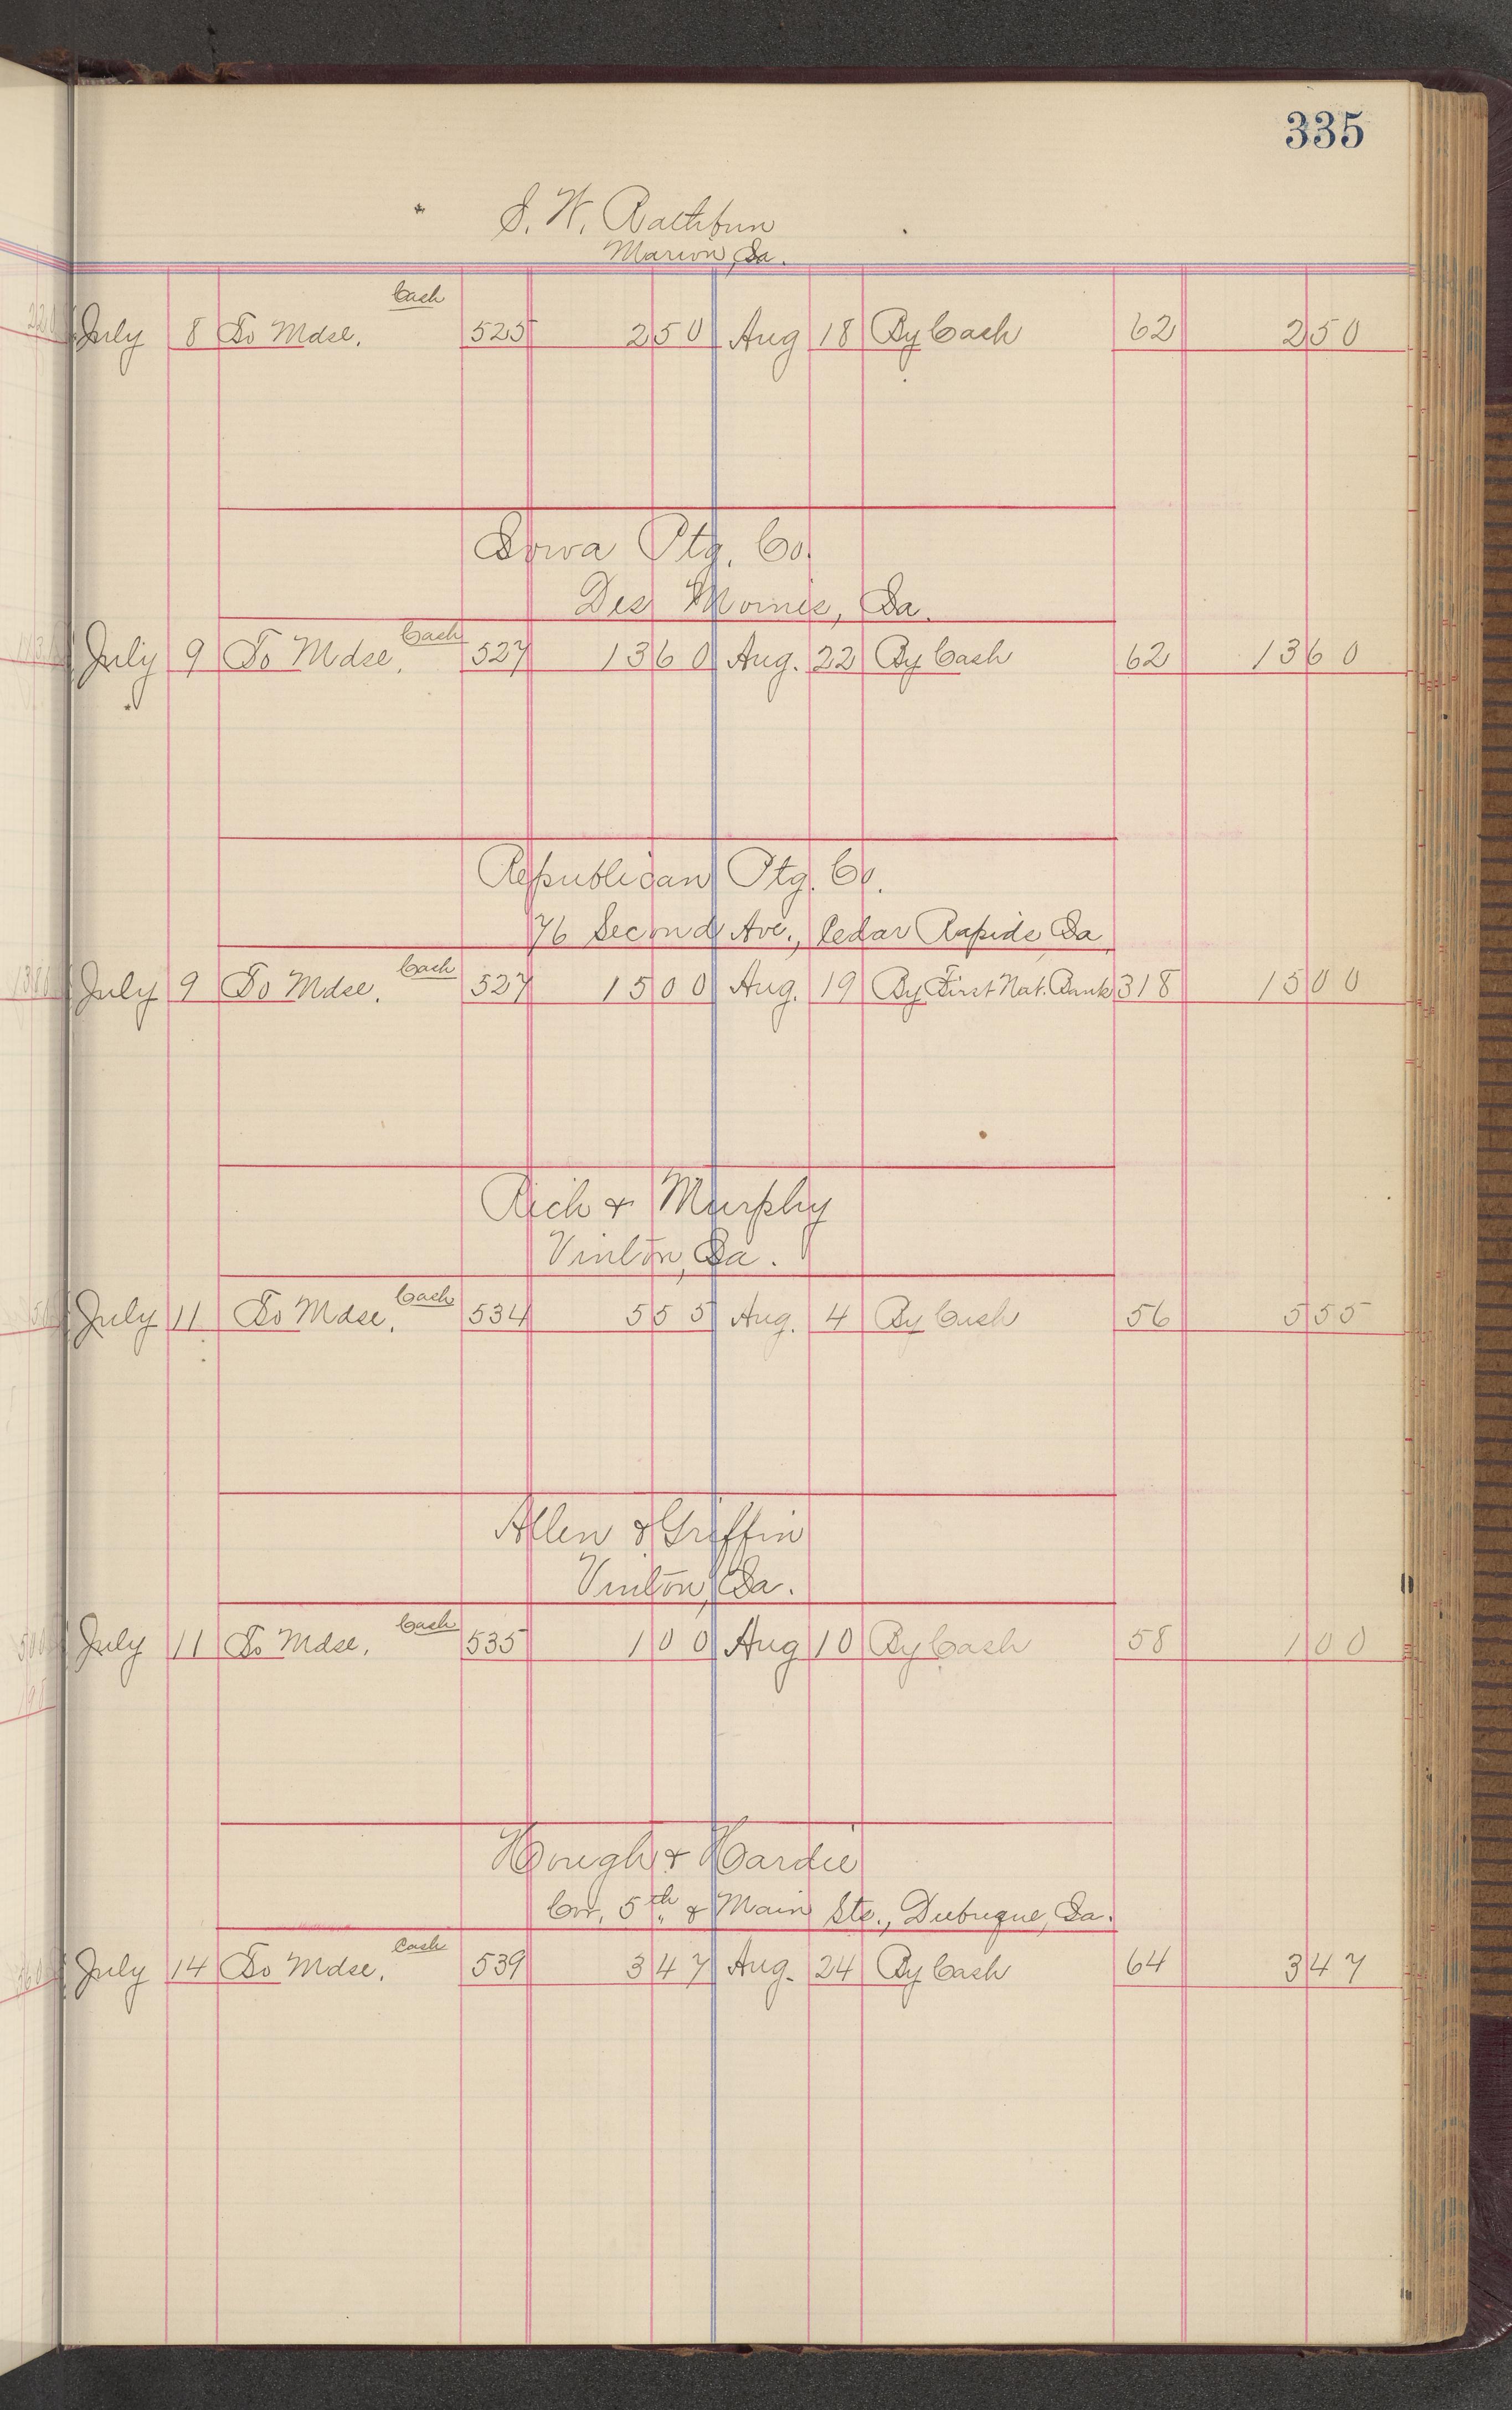 335
S. W. Rathbun
Marion, Ia.
Cash
July 8 To Mdse. 525 2 50 Aug 18 By Cash 62 2 50
Iowa Ptg. Co.
Des Moines, Ia.
July 9 To Mdse. Cash 527 13 60 Aug. 22 By Cash 62 13 60
Republican Ptg. Co.
76 Second Ave., Cedar Rapids, Ia.
July 9 To Mdse. Cash 527 15 00 Aug. 19 By First Nat. Bank 318 15 00
Rich & Murphy
Vinton, Ia.
July 11 To Mdse. Cash 534 5 55 Aug. 4 By Cash 56 5 55
Allen & Griffin
Vinton, Ia.
July 11 To Mdse. Cash 535 1 00 Aug 10 By Cash 58 1 00
Hough & Hardie
Cor. 5th & Main Sts., Dubuque, Ia.
July 14 To Mdse. Cash 539 3 47 Aug. 24 By Cash 64 3 47